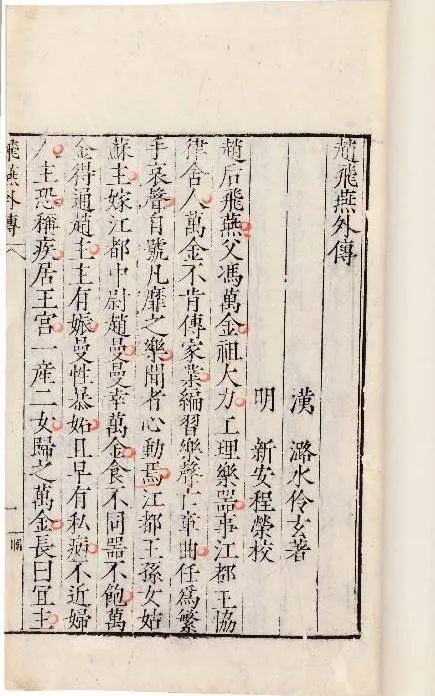 趙飛燕外傳
漢　潞水伶玄著
明　新安程榮校
趙后飛燕父馮萬金祖大力工理樂器事江都王協
律舍人萬金不肯傳家業編習樂聲亡章曲任為繁
手哀聲自號凡靡之樂聞者心動焉江都王孫女姑
蘇主嫁江都中尉趙曼曼幸萬金食不同器不飽萬
金得通趙主主有娠曼性暴妬且早有私病不近婦
人主恐稱疾居王宮一產二女歸之萬金長曰宜主
飛燕外傳　一